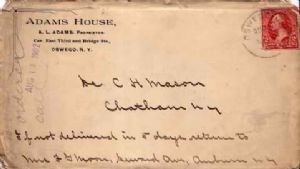 ADAMS HOUSE,
A. L. ADAMS, PROPRIETOR.
Cor. East Third and Bridge Sts.,
OSWEGO, N. Y.
Dr C H Mason
Chatham NY
If not delivered in 5 days return to
Mrs F G Moore, Seward Ave, Auburn NY